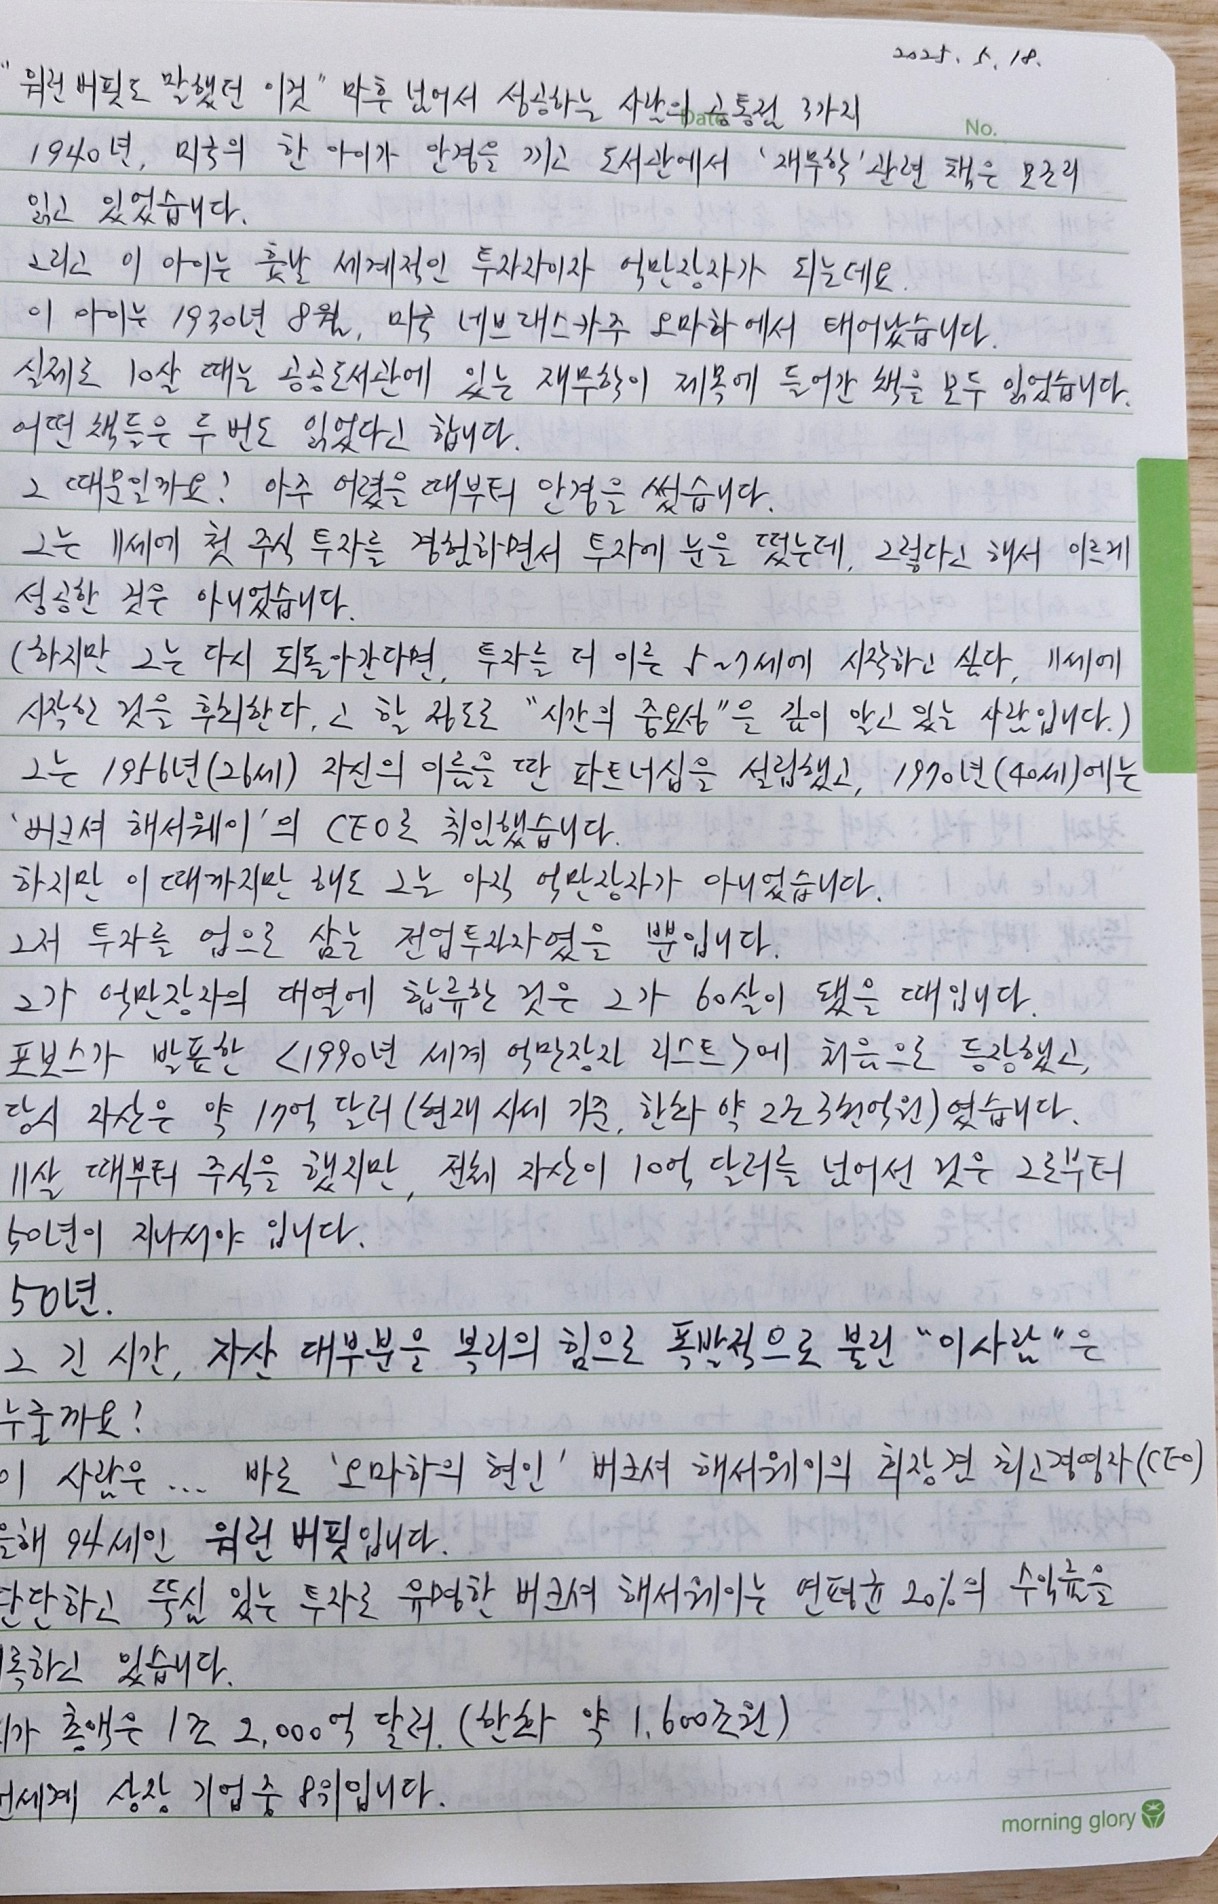 2025. 5. 18.
"워런 버핏도 말했던 이것" 마흔 넘어서 성공하는 사람의 공통점 3가지
Date
No.
1940년, 미국의 한 아이가 안경을 끼고 도서관에서 '재무학' 관련 책은 모조리
읽고 있었습니다.
그리고 이 아이는 훗날 세계적인 투자자이자 억만장자가 되는데요.
이 아이는 1930년 8월, 미국 네브래스카주 오마하에서 태어났습니다.
실제로 10살 때는 공공도서관에 있는 재무학이 제목에 들어간 책을 모두 읽었습니다.
어떤 책들은 두 번도 읽었다고 합니다.
그 때문일까요? 아주 어렸을 때부터 안경을 썼습니다.
그는 11세에 첫 주식 투자를 경험하면서 투자에 눈을 떴는데, 그렇다고 해서 이르게
성공한 것은 아니었습니다.
(하지만 그는 다시 되돌아간다면, 투자를 더 이른 5~7세에 시작하고 싶다, 11세에
시작한 것을 후회한다, 고 할 정도로 "시간의 중요성"을 깊이 알고 있는 사람입니다.)
그는 1956년(26세) 자신의 이름을 딴 파트너십을 설립했고, 1970년(40세)에는
'버크셔 해서웨이'의 CEO로 취임했습니다.
하지만 이 때까지만 해도 그는 아직 억만장자가 아니었습니다.
그저 투자를 업으로 삼는 전업투자자였을 뿐입니다.
그가 억만장자의 대열에 합류한 것은 그가 60살이 됐을 때입니다.
포보스가 발표한 <1990년 세계 억만장자 리스트>에 처음으로 등장했고,
당시 자산은 약 17억 달러(현재 시세 기준, 한화 약 2조 3천억원)였습니다.
11살 때부터 주식을 했지만, 전체 자산이 10억 달러를 넘어선 것은 그로부터
50년이 지나서야 입니다.
50년.
그 긴 시간, 자산 대부분을 복리의 힘으로 폭발적으로 불린 "이사람"은
누굴까요?
이 사람은... 바로 '오마하의 현인' 버크셔 해서웨이의 회장겸 최고경영자(CEO)
올해 94세인 워런 버핏입니다.
단단하고 뚝심 있는 투자로 유명한 버크셔 해서웨이는 연평균 20%의 수익률을
기록하고 있습니다.
시가 총액은 1조 2,000억 달러. (한화 약 1,600조원)
전세계 상장 기업 중 8위입니다.
morning glory